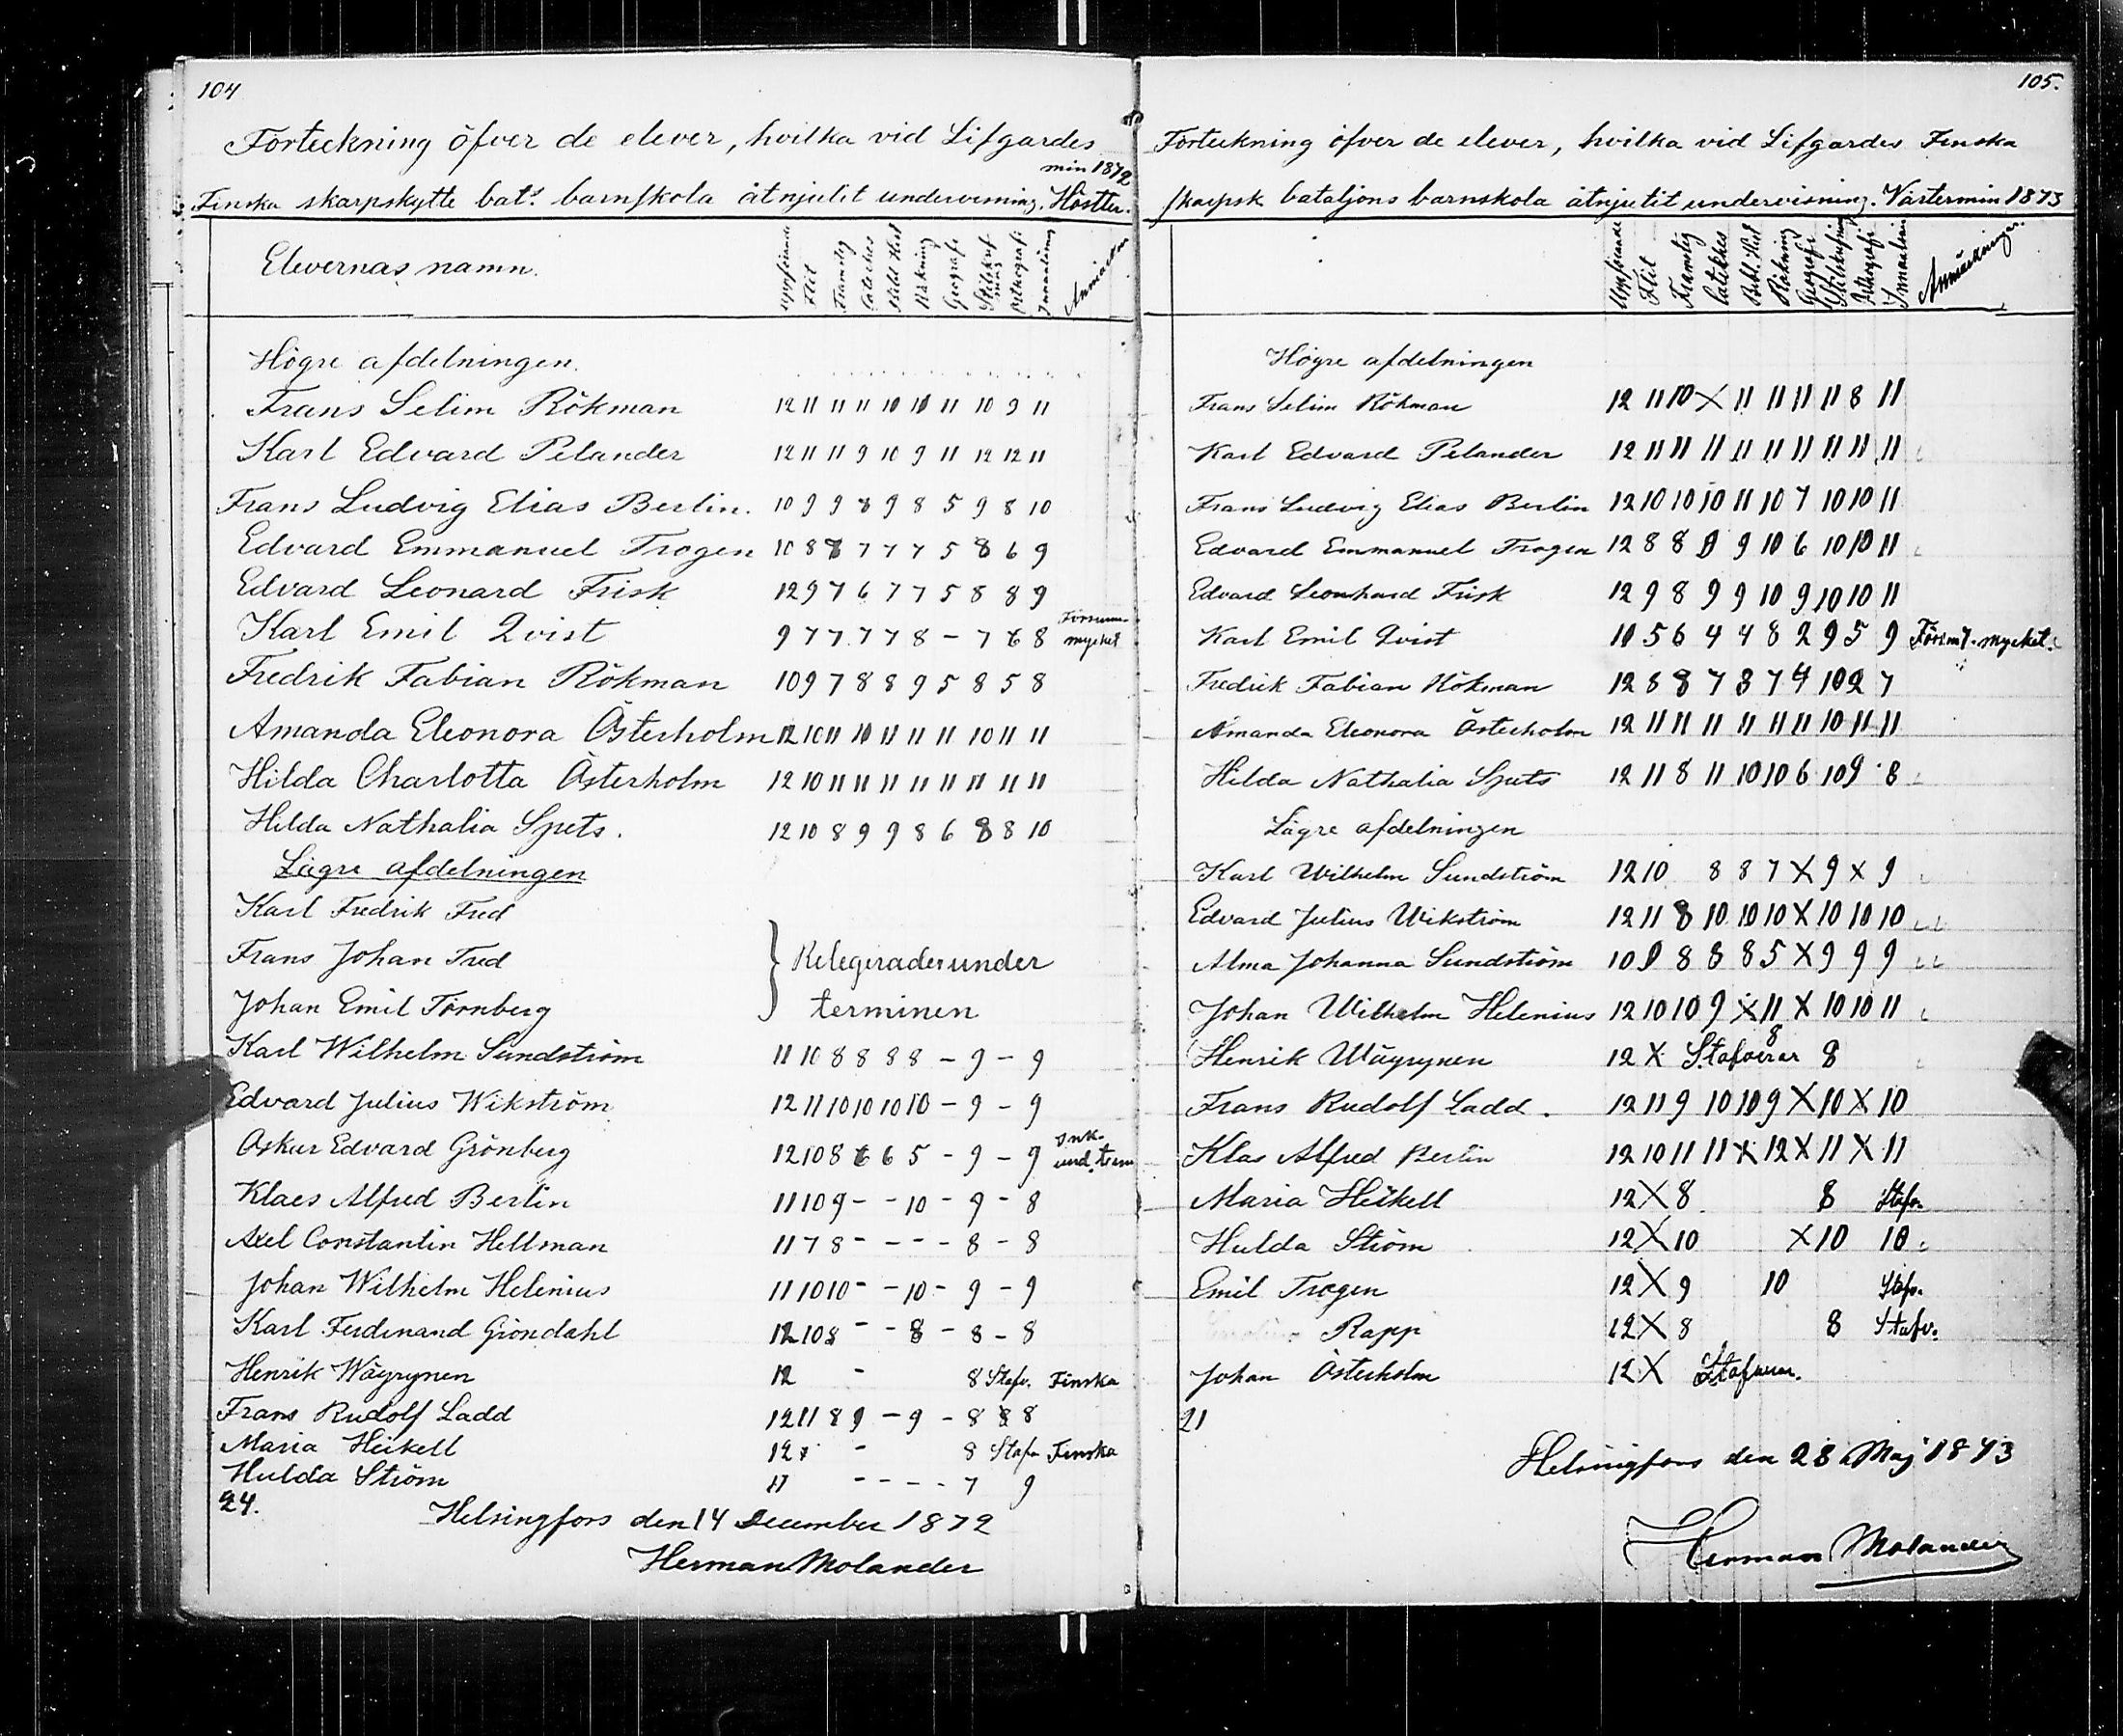 104
Förteckning öfver de elever, hvilka vid Lifgardes
min 1872
Finska skarpskytte bats. barnskola åtnjutit undervisning. Höstter.
Elevernas namn.
Uppförande Flit Framsteg Cateches Bibl. Hist Räkning Geografi Stilskrifning Ortografi Innanläsning Anmärkn
Högre afdelningen.
Frans Selim Rökman 12 11 11 11 10 10 11 10 9 11
Karl Edvard Pelander 12 11 11 9 10 9 11 12 12 11
Frans Ludvig Elias Berlin. 10 9 9 8 9 8 5 9 8 10
Edvard Emmanuel Trogen 10 8 8 7 7 7 5 8 6 9
Edvard Leonard Frisk 12 9 7 6 7 7 5 8 8 9
Karl Emil Qvist 9 7 7 7 7 8 - 7 6 8 Försum. mycket
Fredrik Fabian Rökman 10 9 7 8 8 9 5 8 5 8
Amanda Eleonora Österholm 12 10 11 10 11 11 11 10 11 11
Hilda Charlotta Österholm 12 10 11 11 11 11 11 11 11 11
Hilda Nathalia Spets. 12 10 8 9 9 8 6 8 8 10
Lägre afdelningen
Karl Fredrik Fred
Frans Johan Fred Relegerades under
Johan Emil Törnberg terminen
Karl Wilhelm Sundström 11 10 8 8 8 8 - 9 - 9
Edvard Julius Wikström 12 11 10 10 10 10 - 9 - 9
Oskar Edvard Grönberg 12 10 8 6 6 5 - 9 - 9 Ink. und. term
Klaes Alfred Berlin 11 10 9 - - 10 - 9 - 8
Axel Constantin Hellman 11 7 8 - - - - 8 - 8
Johan Wilhelm Helenius 11 10 10 - - 10 - 9 - 9
Karl Ferdinand Gröndahl 12 10 8 - - 8 - 8 - 8
Henrik Wäyrynen 12 - 8 Stafv. Finska
Frans Rudolf Ladd 12 11 8 9 - 9 - 8 8 8
Maria Heikell 12 x - 8 Stafv Finska
Hulda Ström 11 - - - - 7 9
24.
Helsingfors den 14 December 1872
Herman Molander
105.
Förteckning öfver de elever, hvilka vid Lifgardes Finska
skarpsk bataljons barnskola åtnjutit undervisning. Vårtermin 1873
Uppförande Flit Framsteg Cateches Bibl. Hist Räkning Geografi Stilskrifning Ortografi Innanläsn Anmärkningar.
Högre afdelningen
Frans Selim Rökman 12 11 10 X 11 11 11 11 8 11
Karl Edvard Pelander 12 11 11 11 11 11 11 11 11 11
Frans Ludvig Elias Berlin 12 10 10 10 11 10 7 10 10 11
Edvard Emmanuel Trogen 12 8 8 9 9 10 6 10 10 11
Edvard Leonhard Frisk 12 9 8 9 9 10 9 10 10 11
Karl Emil Qvist 10 5 6 4 4 8 2 9 5 9 Försmt. mycket.
Fredik Fabian Rökman 12 8 8 7 3 7 4 10 2 7
Amanda Eleonora Österholm 12 11 11 11 11 11 11 10 11 11
Hilda Nathalia Spets 12 11 8 11 10 10 6 10 9 8
Lägre afdelningen
Karl Wilhelm Sundström 12 10 8 8 7 X 9 X 9
Edvard Julius Wikström 12 11 8 10 10 10 X 10 10 10
Alma Johanna Sundström 10 9 8 8 8 5 X 9 9 9
Johan Wilhelm Helenius 12 10 10 9 X 11 X 10 10 11
Henrik Wäyrynen 12 X Stafverar 8 8
Frans Rudolf Ladd. 12 11 9 10 10 9 X 10 X 10
Klas Alfred Berlin 12 10 11 11 X 12 X 11 X 11
Maria Heikell 12 X 8 8 Stafv.
Hulda Ström 12 X 10 X 10 10
Emil Trogen 12 X 9 10 Stafv.
Rapp 12 X 8 8 Stafv.
Johan Österholm 12 X Stafverar.
21
Helsingfors den 28 Maj 1873
Herman Molander